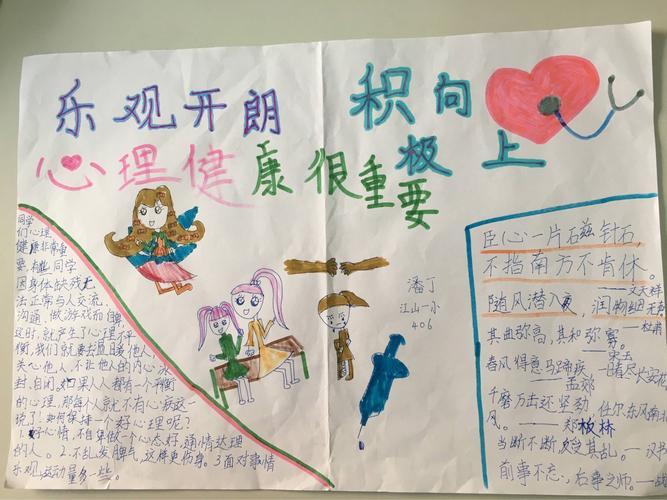 乐观开朗 积极向上
心理健康很重要
同学
们心理
健康非常重
要,有些同学
因身体缺残无
法正常与人交流,
沟通,做游戏而自卑,
这时,就产生了心理不平
衡,我们就要去直接他人,
关心他人,不让他人的内心冰
封,自闭,如果人人都有一个平衡
的心理,那每个人就不有心疾这一
说了!如何保持一个好心理呢?
1.好心情,不自卑做一个心态好,通情达理
的人。2.不乱发脾气,这样更伤身。3面对事情
乐观运动量多一些。
潘丁
江山一小
406
臣心一片磁针石,
不指南方不肯休。
——文天祥
随风潜入夜,润物细无声
——杜甫
其曲弥高,其和弥寡。
——宋玉
春风得意马蹄疾,一日看尽长安花
——孟郊
千磨万击还坚劲,任尔东风南北
风。——郑板林
当断不断反受其乱。——汉书
前事不忘,后事之师。——战